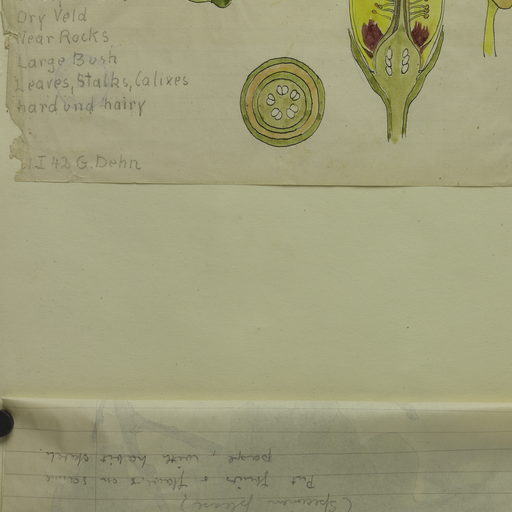 Dry Veld
Near Rocks,
Large Bush
Leaves, Stalks, Calixes
hard und hairy
I 42 G. Dehn
(Specimen please)
Put fruits & flowers on same
page, with habit sketch.